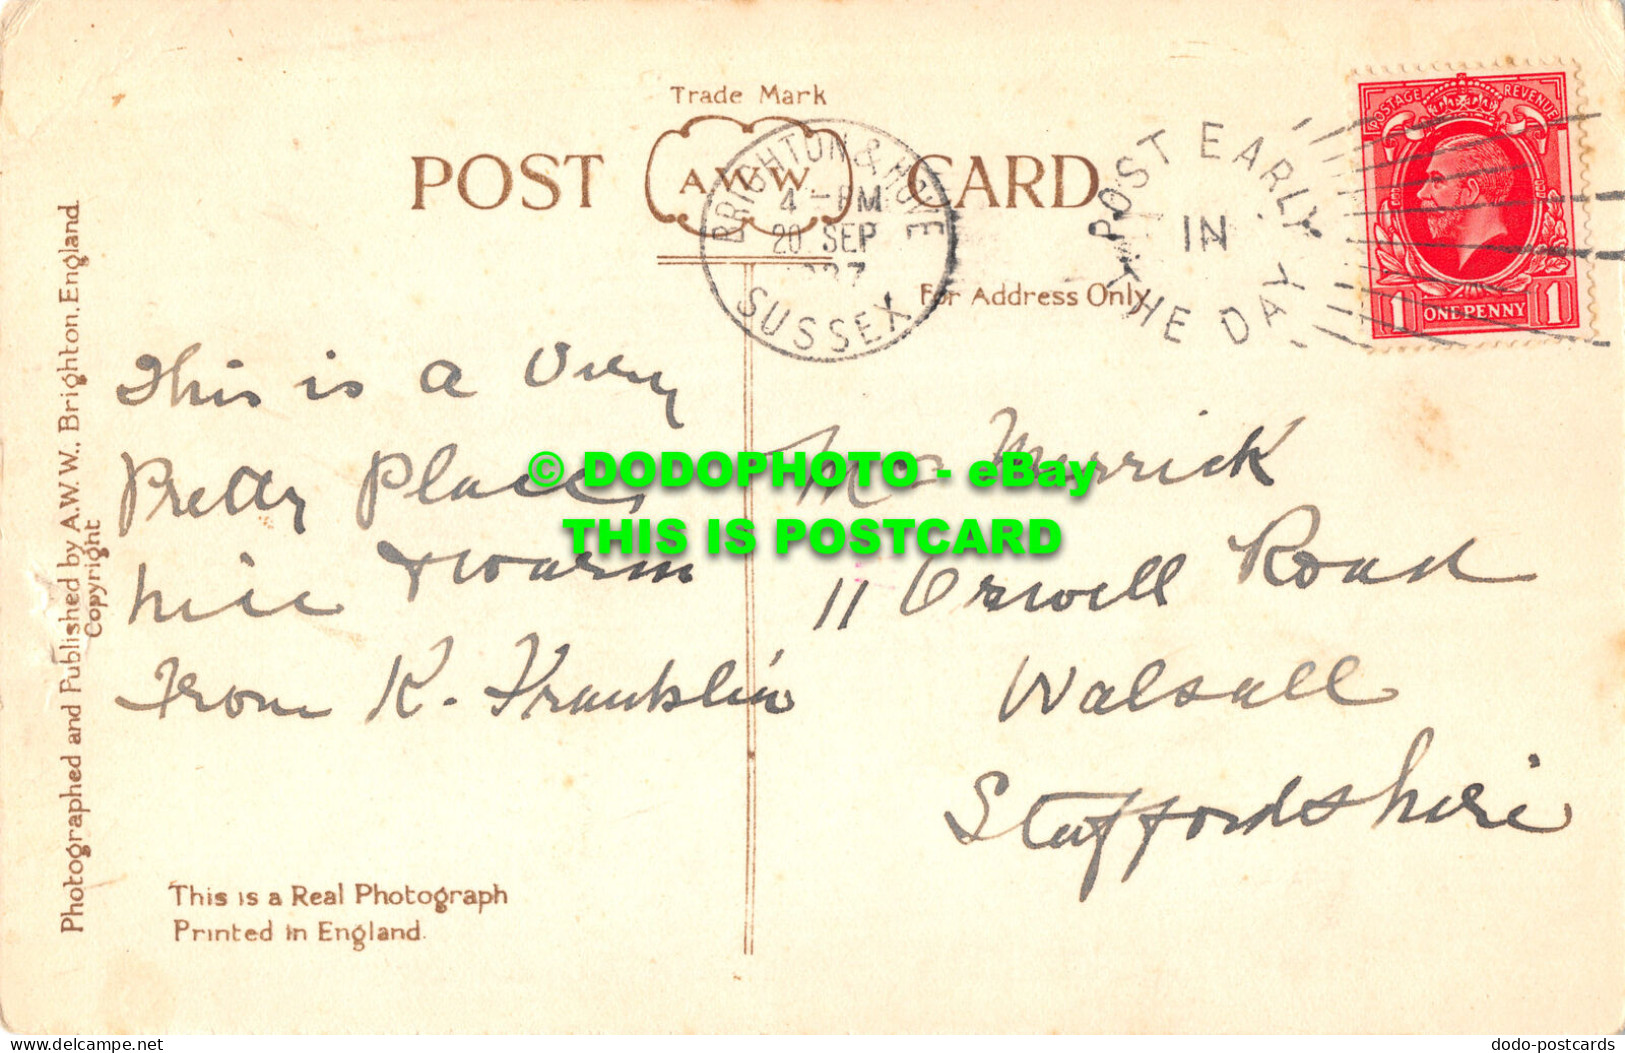 Trade Mark
POST A.W.W CARD
BRIGHTON & HOVE
4 - PM
20 SEP
SUSSEX
POST EARLY
IN
THE DAY
POSTAGE REVENUE
1 ONE PENNY 1
For Address Only.
Photographed and Published by A.W.W., Brighton, England.
Copyright
This is a Very
Pretty Place,
nice & warm
From K. Franklin
Merrick
11 Orwell Road
Walsall
Staffordshire
© DODOPHOTO - eBay
THIS IS POSTCARD
This is a Real Photograph
Printed in England.
www.delcampe.net
dodo-postcards